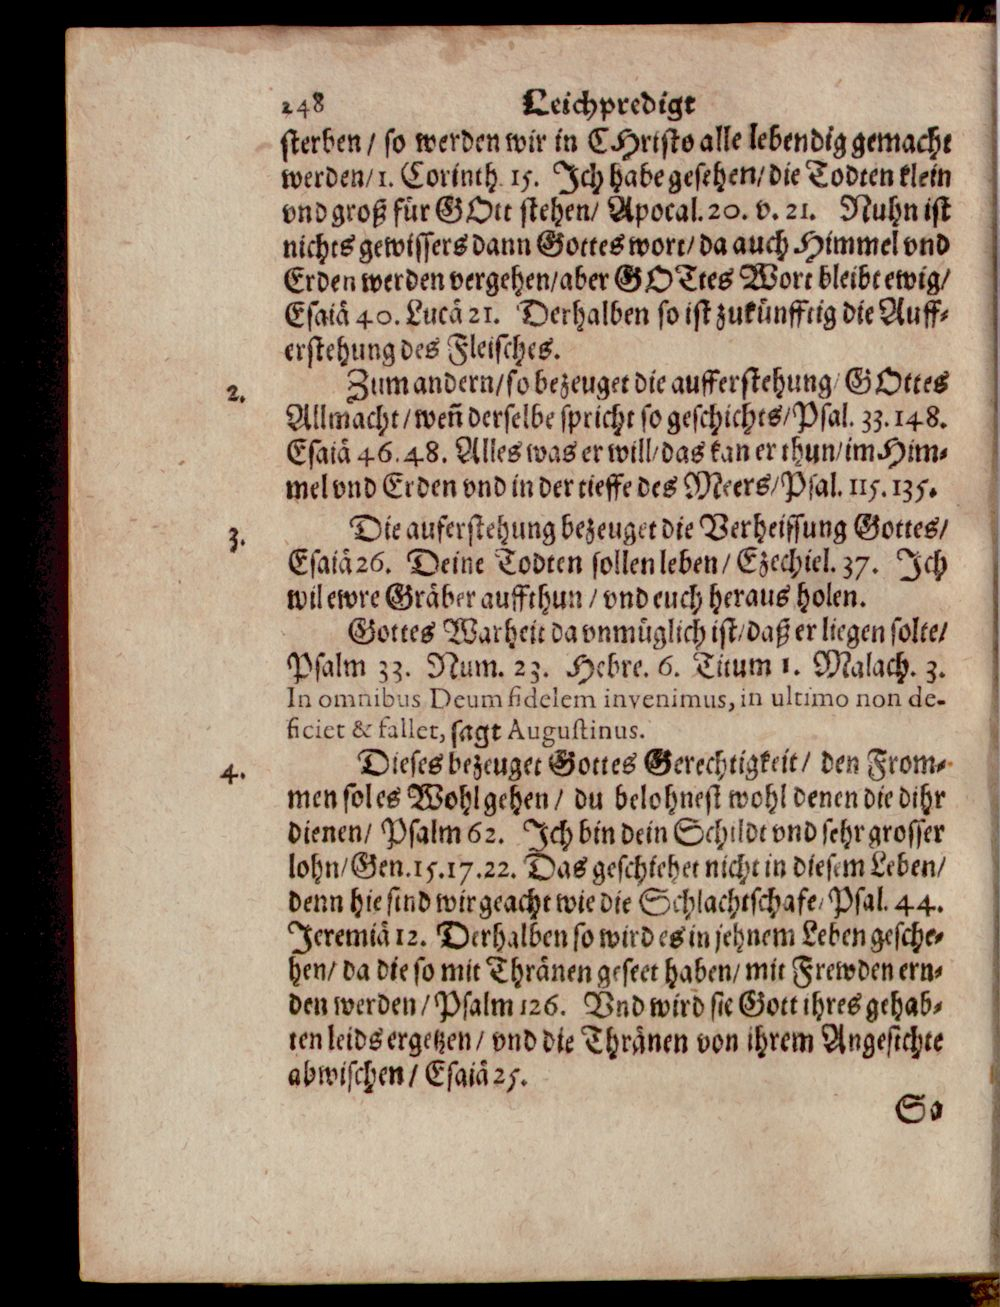 248 Leichpredigt
sterben / so werden wir in CHristo alle lebendig gemacht
werden / 1. Corinth. 15. Ich habe gesehen / die Todten klein
vnd groß für GOtt stehen / Apocal. 20. v. 21. Nuhn ist
nichts gewissers dann Gottes wort / da auch Himmel vnd
Erden werden vergehen / aber GOTtes Wort bleibt ewig /
Esaiä 40. Lucä 21. Derhalben so ist zukünfftig die Auff-
erstehung des Fleisches.
2. Zum andern / so bezeuget die aufferstehung / GOttes
Allmacht / weñ derselbe spricht so geschichts / Psal. 33. 148.
Esaiä 46. 48. Alles was er will / das kan er thun / im Him-
mel vnd Erden vnd in der tieffe des Meers / Psal. 115. 135.
3. Die auferstehung bezeuget die Verheissung Gottes /
Esaiä 26. Deine Todten sollen leben / Ezechiel. 37. Ich
wil ewre Gräber auffthun / vnd euch heraus holen.
Gottes Warheit da vnmüglich ist / daß er liegen solte /
Psalm 33. Num. 23. Hebre. 6. Titum 1. Malach. 3.
In omnibus Deum fidelem invenimus, in ultimo non de-
ficiet & fallet, sagt Augustinus.
4. Dieses bezeuget Gottes Gerechtigkeit / den From-
men sol es Wohl gehen / du belohnest wohl denen die dihr
dienen / Psalm 62. Ich bin dein Schildt vnd sehr grosser
lohn / Gen. 15. 17. 22. Das geschiehet nicht in diesem Leben /
denn hie sind wir geacht wie die Schlachtschafe / Psal. 44.
Jeremiä 12. Derhalben so wird es in jehnem Leben gesche-
hen / da die so mit Thränen geseet haben / mit Frewden ern-
den werden / Psalm 126. Vnd wird sie Gott ihres gehab-
ten leids ergetzen / vnd die Thränen von ihrem Angesichte
abwischen / Esaiä 25.
So